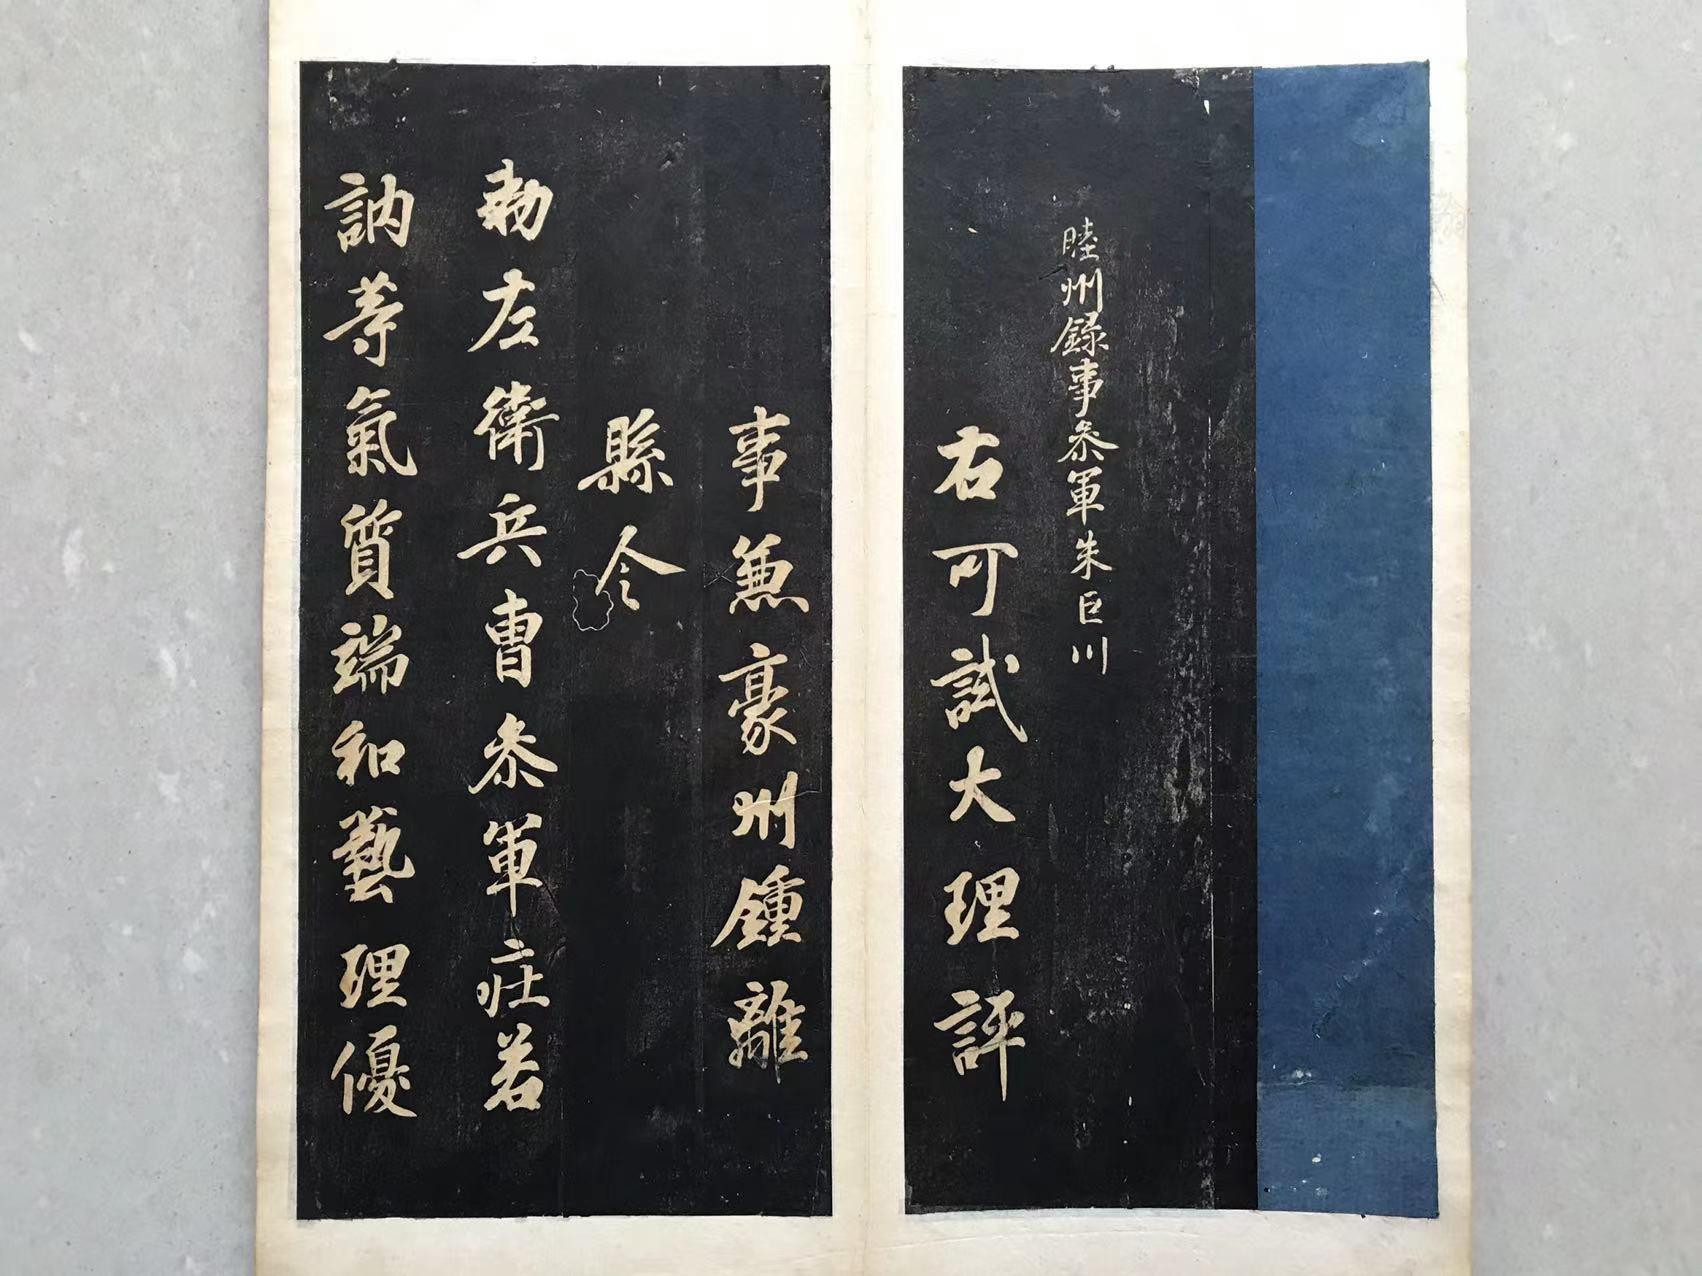 睦州錄事叅軍朱巨川
右可試大理評
事兼豪州鍾離
縣令
勑左衛兵曹叅軍莊若
訥等氣質端和藝理優